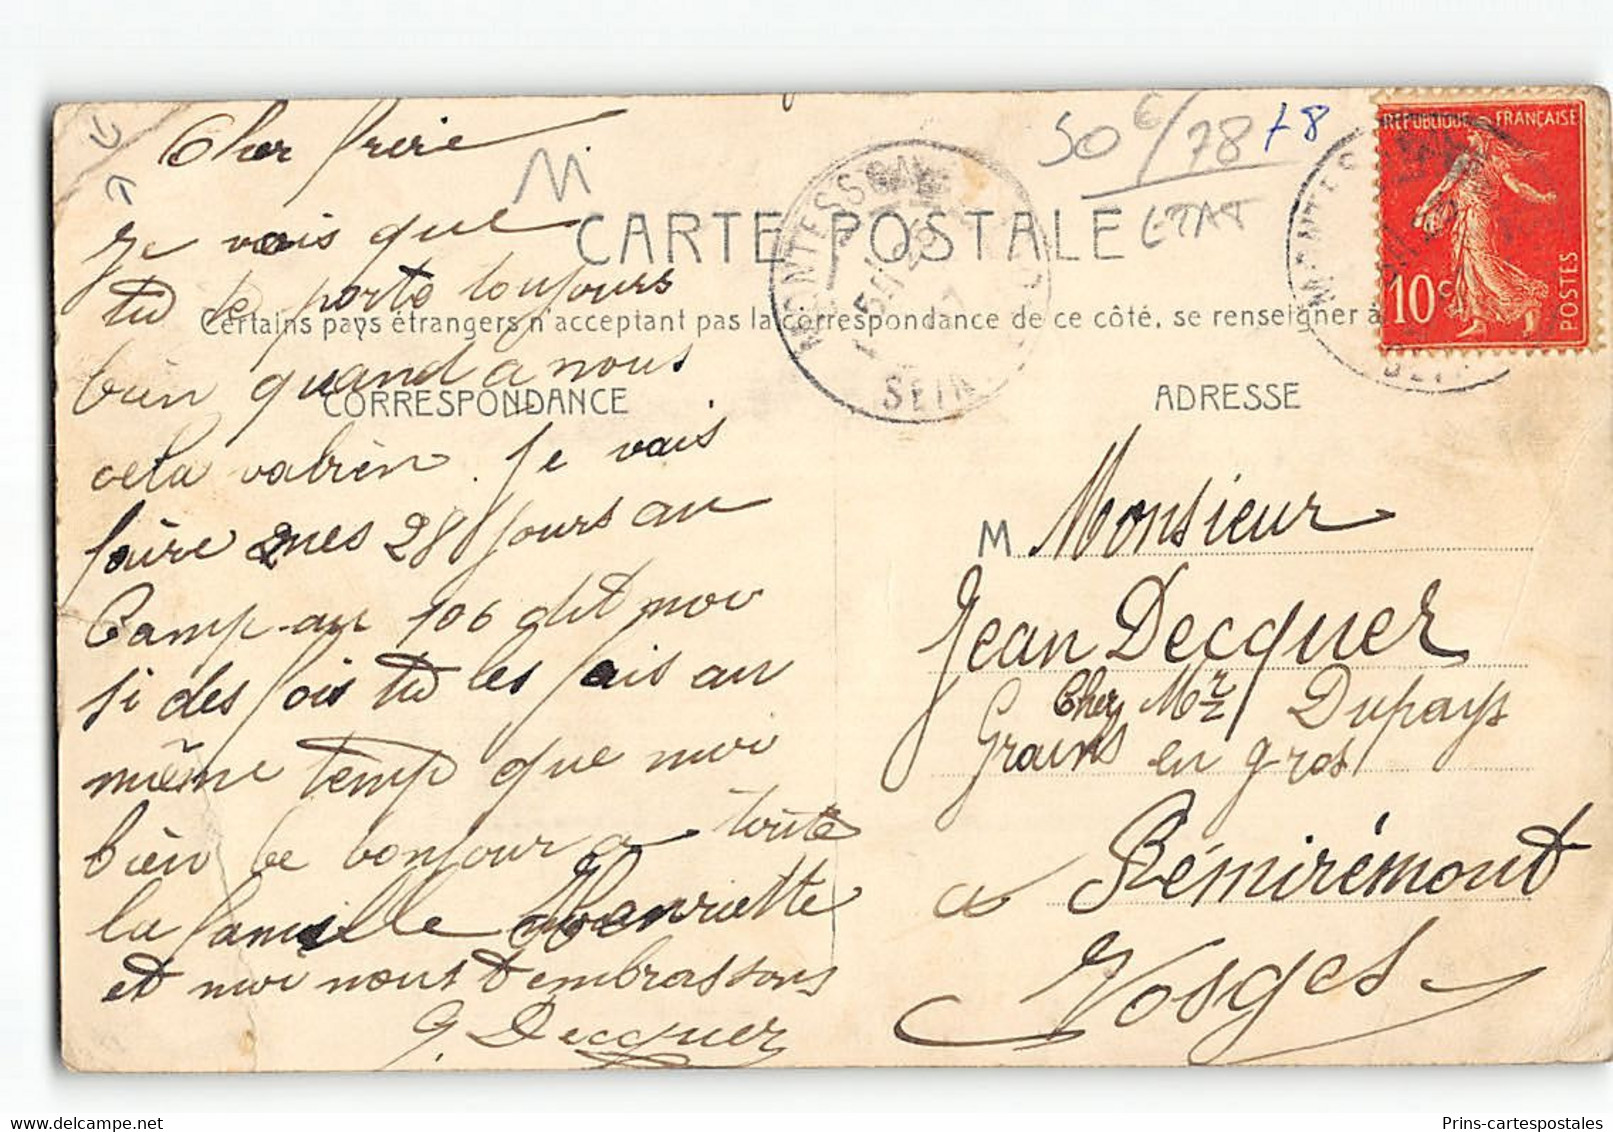 Cher frère
Je vois que
tu te porte toujours
bien quand a nous
cela va bien. Je vais
faire mes 28 jours au
Camp au 106 dit moi
si des fois tu les fais au
même temp que moi
bien le bonjour a toute
la famille Henriette
et moi nous t'embrassons
G. Decquer
M
CARTE POSTALE
Certains pays étrangers n'acceptant pas la correspondance de ce côté, se renseigner à
CORRESPONDANCE
ADRESSE
50€/78 78
ETAT
SEINE
RÉPUBLIQUE FRANÇAISE
10c
POSTES
M Monsieur
Jean Decquer
Cher Mr Dupays
Grains en gros
a Rémirémont
Vosges
Prins-cartespostales